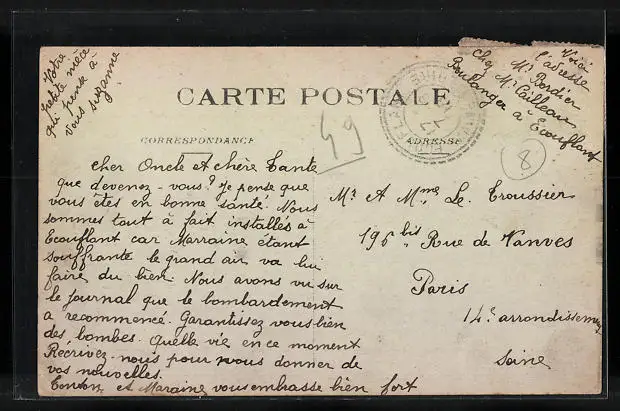 Votre
petite nièce
qui pense à
vous Suzanne
Voici
l'adresse
Mr Bordier
chez Mr Cailleau
Boulanger à Ecouflant
CARTE POSTALE
49
8
CORRESPONDANCE
ADRESSE
Cher Oncle et chère Tante
que devenez-vous? Je pense que
vous êtes en bonne santé. Nous
sommes tout à fait installés à
Ecouflant car Marraine étant
souffrante le grand air va lui
faire du bien. Nous avons vu sur
le journal que le bombardement
a recommencé. Garantissez vous bien
des bombes. Quelle vie en ce moment
Récrivez-nous pour nous donner de
vos nouvelles.
Tonton et Maraine vous embrasse bien fort
Mr A Mme Le Troussier
196 bis Rue de Vanves
Paris
14e arrondissement
Seine